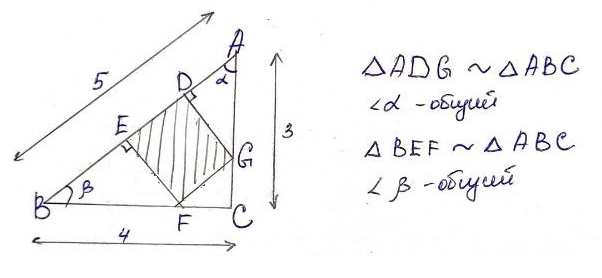 5
A
α
D
E
3
G
β
B
F
C
4
△ADG ~ △ABC
∠α - общий
△BEF ~ △ABC
∠β - общий